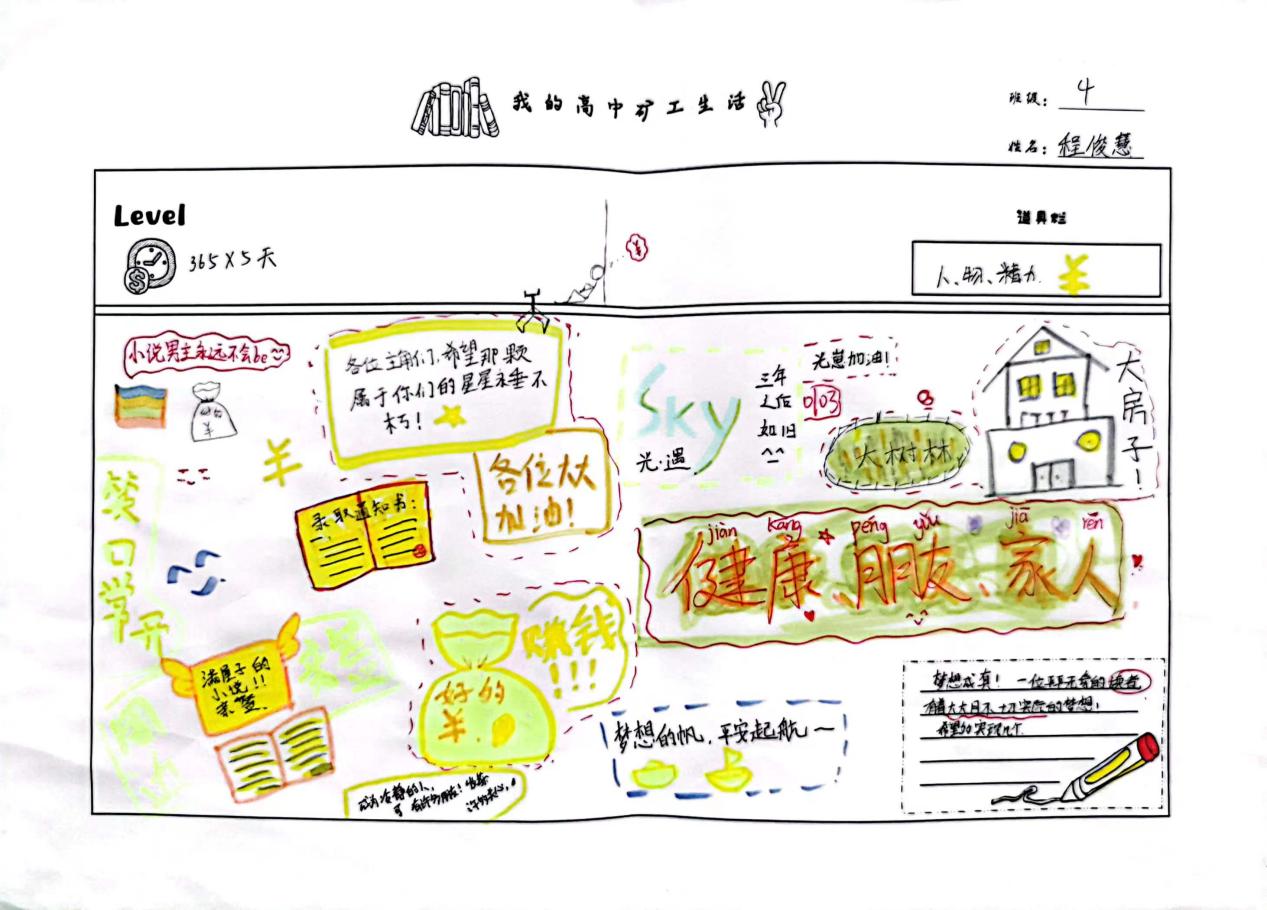 我的高中矿工生活
班级：4
姓名：程俊慧
Level
道具栏
365X5天
人、物、精力 ¥
小说男主永远不会be
各位主角们，希望那颗
属于你们的星星永垂不
朽！
各位大大
加油！
录取通知书：
笑口常开
满屋子的
小说！！
亲签
好的
¥
赚钱
!!!
成为冷静的人，
梦想的帆，平安起航～
Sky
光·遇
三年
之后
如旧
光崽加油！
0103
大树林
大房子！
jiàn kāng péng yǒu jiā rén
健康、朋友、家人
梦想成真！一位
的梦想！
希望